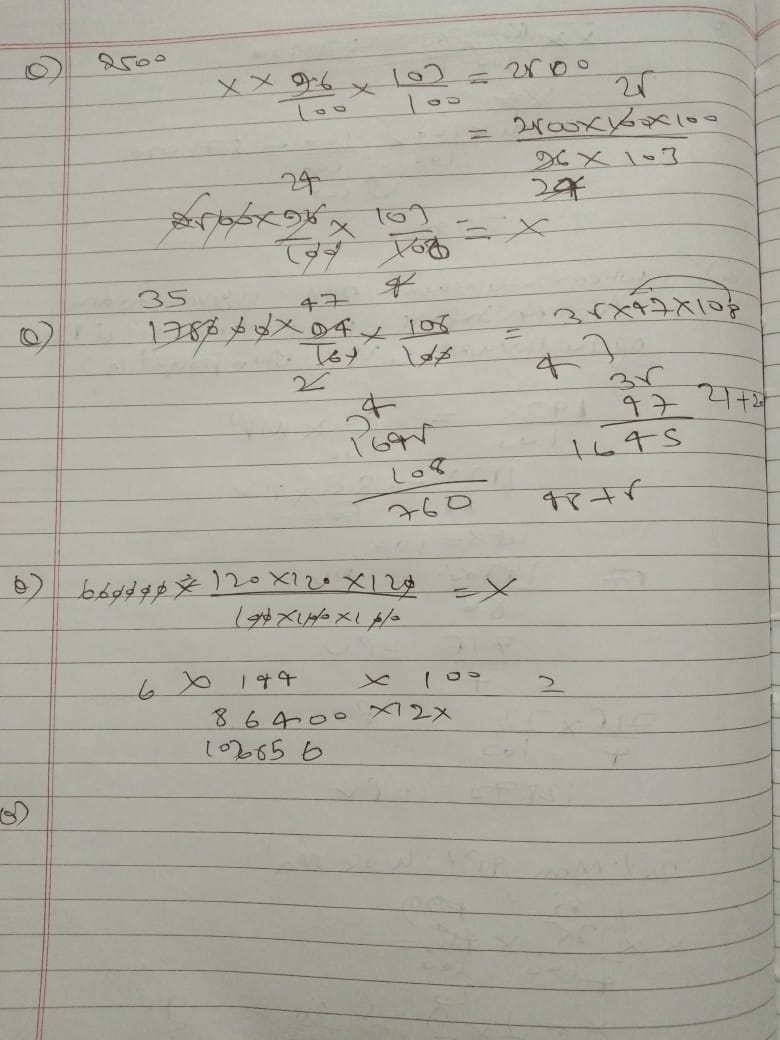 Q) 2500
X × 96/100 × 103/100 = 2500
25
= 2500×100×100 / 96 × 103
24
24
2500×96/100 × 103/100 = X
4
35 47
Q) 1750000× 94/100 × 108/100 = 35×47×108
2
4
1645
108
760
35
47 21+2
1645
48+5
Q) 600000 × 120×120×120 / 100×100×100 = X
6 × 144 × 100 =
86400 ×12×
Q)